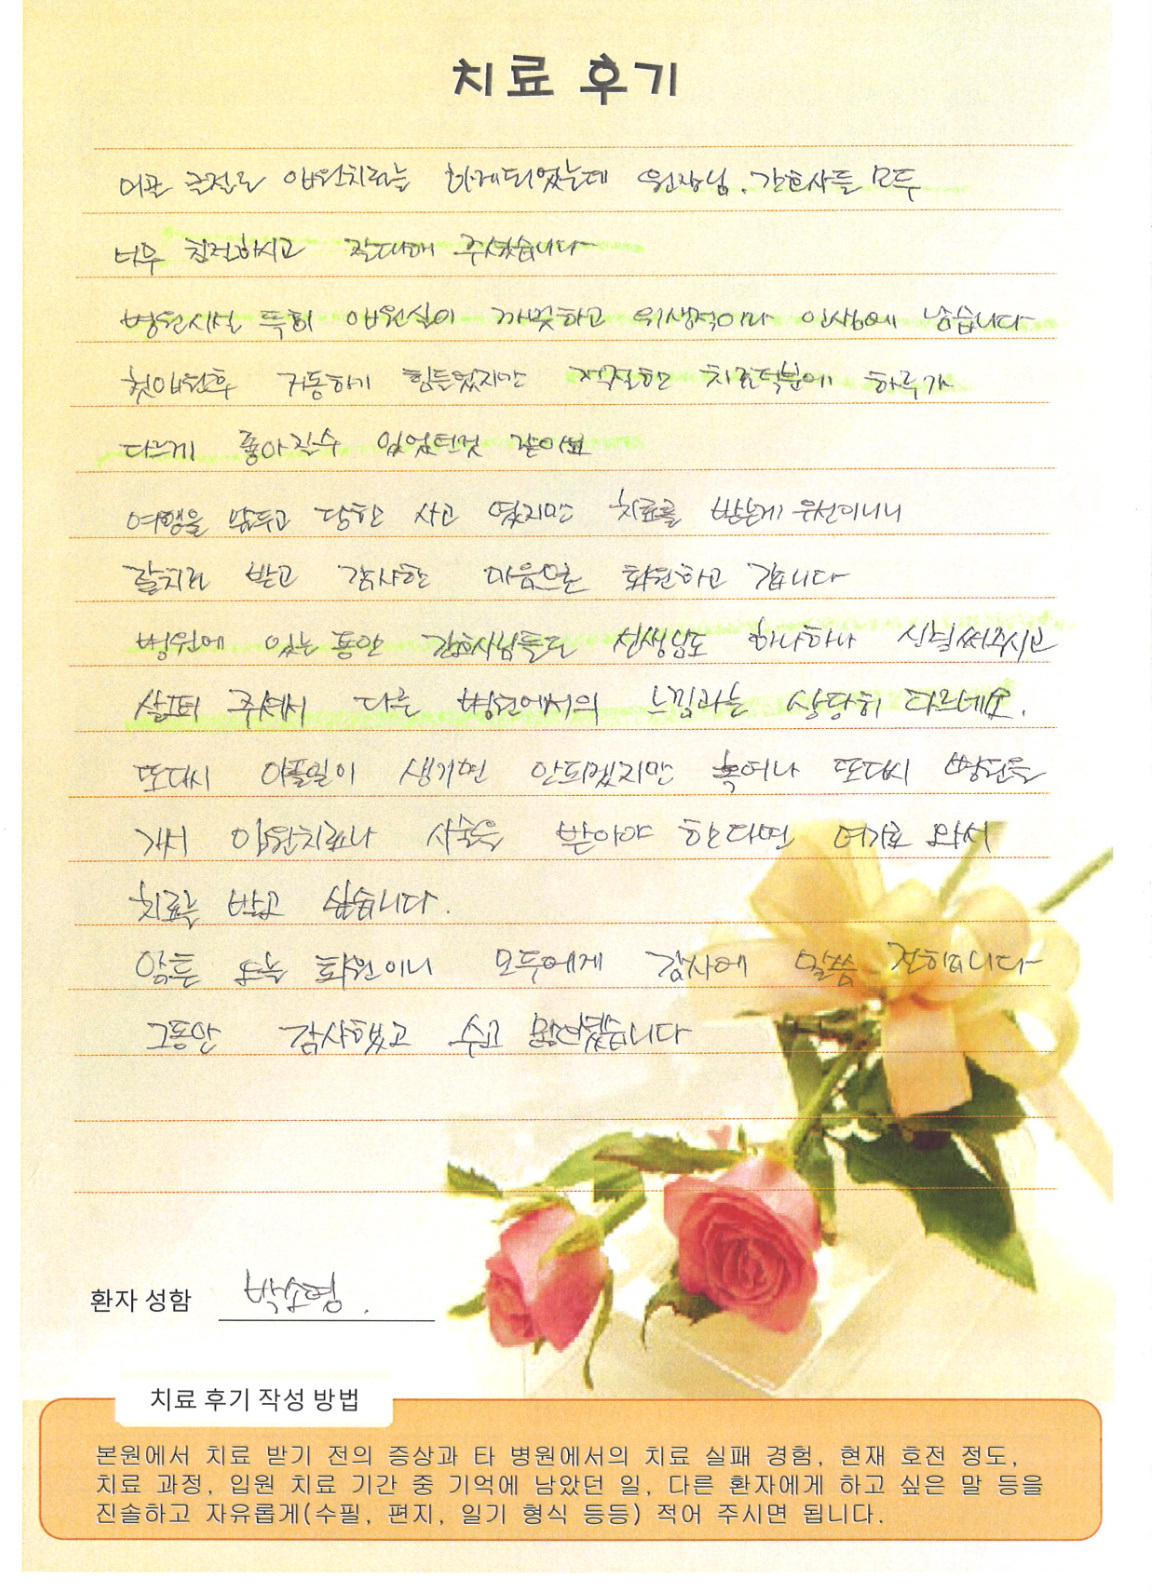 치료 후기
어깨 골절로 입원치료를 하게되었는데 원장님, 간호사들 모두
너무 친절하시고 잘대해 주셨습니다
병원시설 특히 입원실이 깨끗하고 위생적이라 인상에 남습니다
첫입원후 거동하기 힘들었지만 적절한 치료덕분에 하루가
다르게 좋아질수 있었던것 같아요
여행을 앞두고 당한 사고 였지만 치료를 받는게 우선이니
잘치료 받고 감사한 마음으로 퇴원하고 갑니다
병원에 있는 동안 간호사님들도 선생님도 하나하나 신경써주시고
살펴 주셔서 다른 병원에서의 느낌과는 상당히 다르네요.
또다시 아플일이 생기면 안되겠지만 혹여나 또다시 병원을
가서 입원치료나 수술을 받아야 한다면 여기로 와서
치료를 받고 싶습니다.
암튼 오늘 퇴원이니 모두에게 감사에 말씀 전합니다
그동안 감사했고 수고 많으셨습니다
환자 성함 박소영.
치료 후기 작성 방법
본원에서 치료 받기 전의 증상과 타 병원에서의 치료 실패 경험, 현재 호전 정도,
치료 과정, 입원 치료 기간 중 기억에 남았던 일, 다른 환자에게 하고 싶은 말 등을
진솔하고 자유롭게(수필, 편지, 일기 형식 등등) 적어 주시면 됩니다.